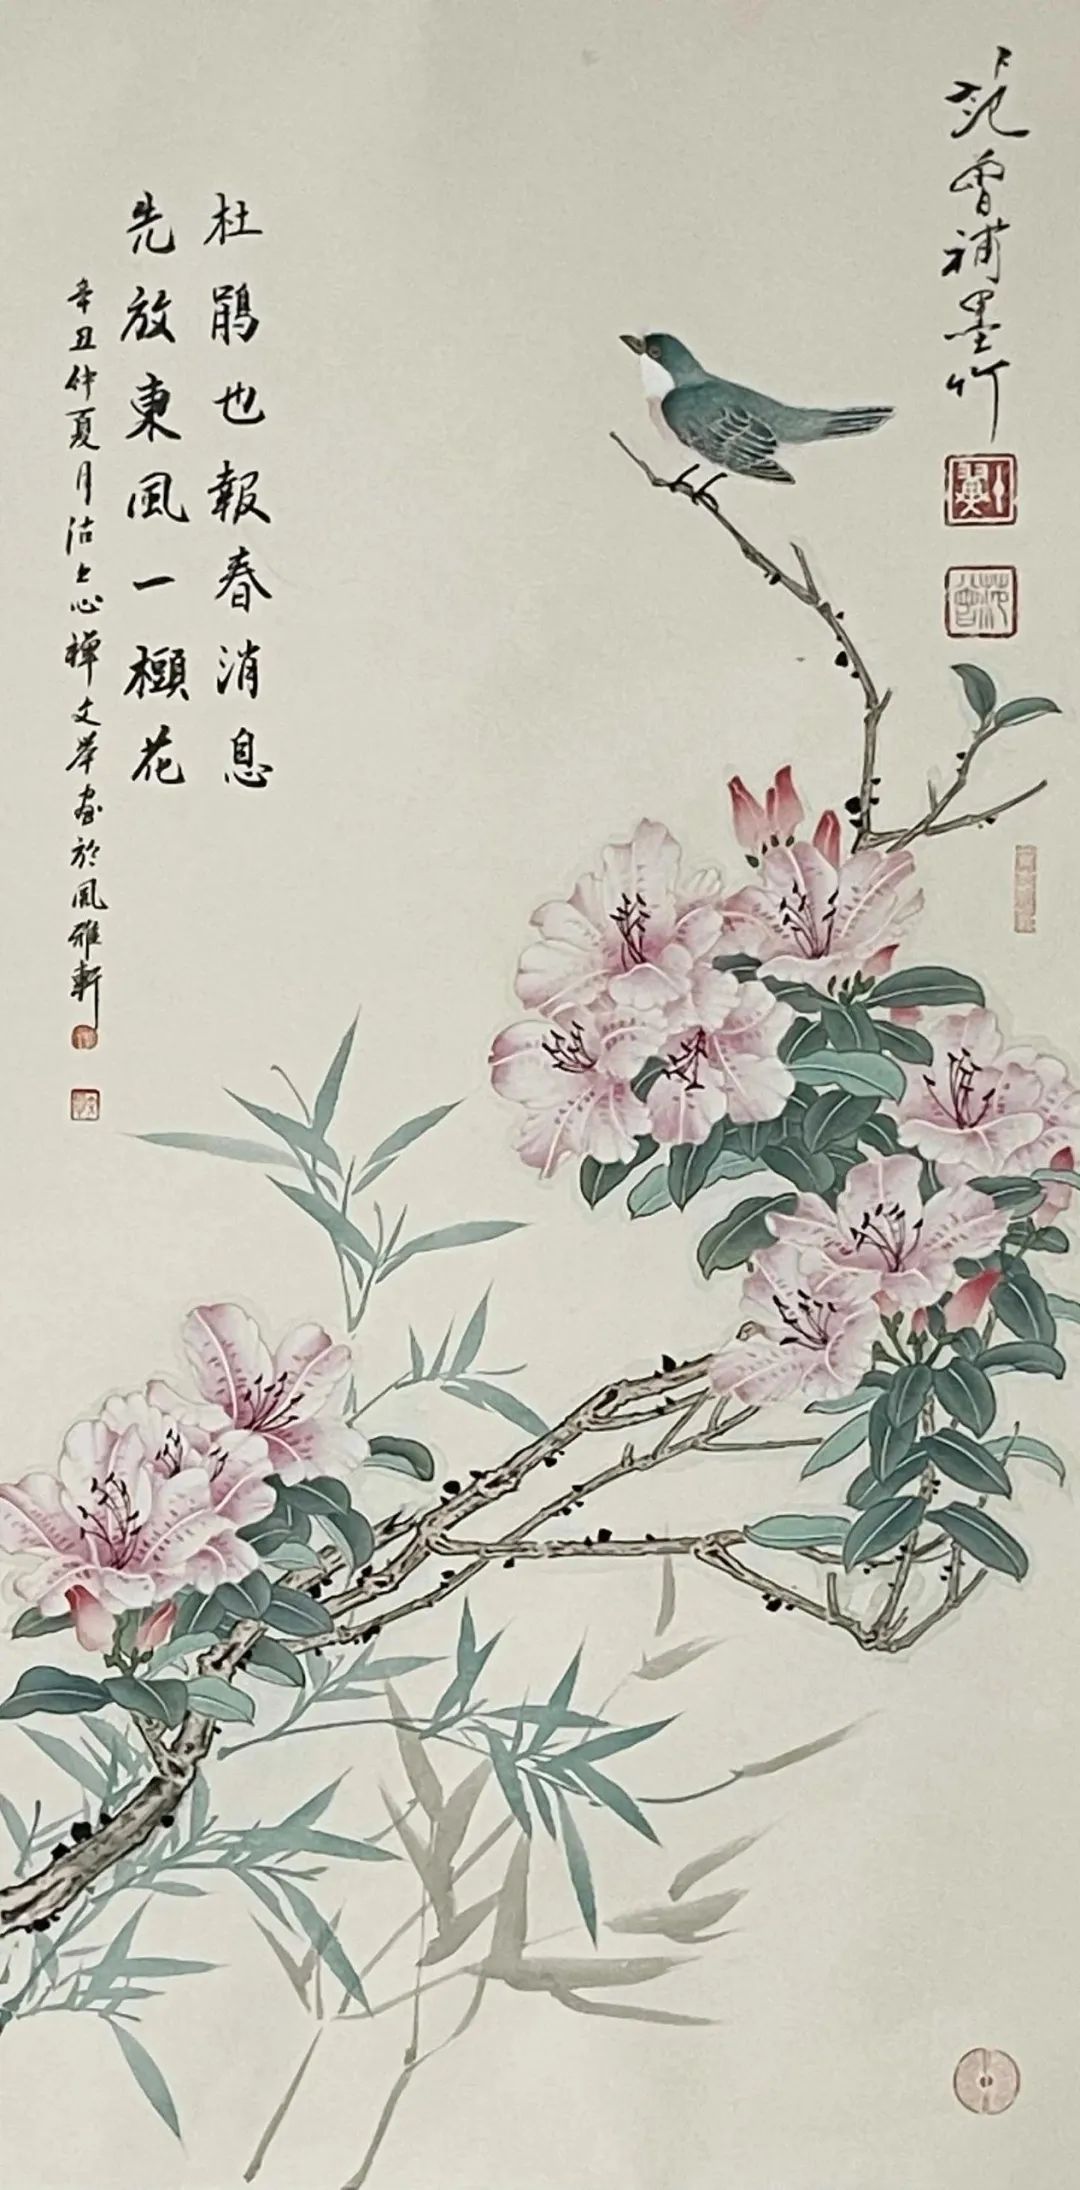 范曾補墨竹
十翼
范曾
杜鵑也報春消息
先放東風一樹花
辛丑仲夏月沽上心禪文举畫於風雅軒